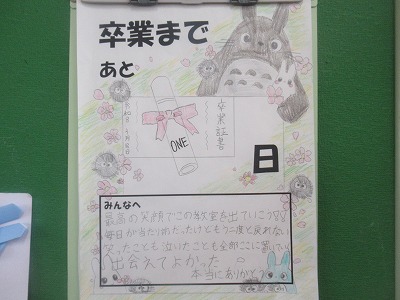 卒業まで
あと
卒業証書
ONE
日
みんなへ
最高の笑顔でこの教室を出ていこう
毎日が当たりめだったけどもう二度と戻れない
笑ったことも泣いたことも全部ここに置いてい
出会えてよかった
本当にありがとう